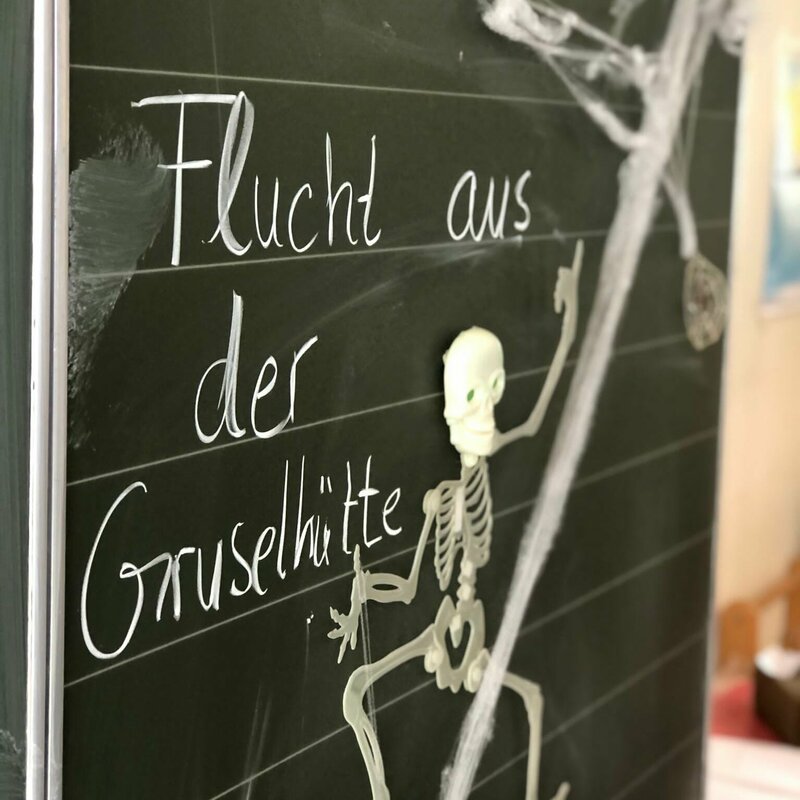 Flucht aus
der
Gruselhütte